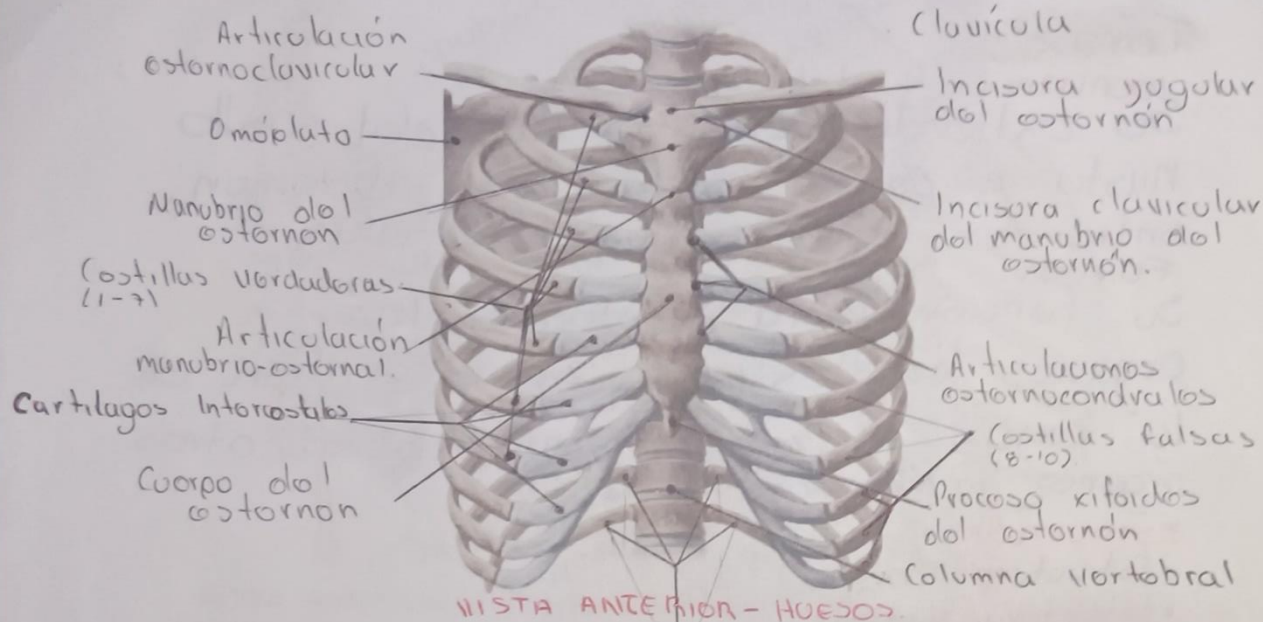 Articulación
esternoclavicular
Omóplato
Manubrio del
esternon
Costillas verdaderas
(1-7)
Articulación
manubrio-esternal.
Cartilagos Intercostales
Cuerpo del
esternon
Clavícula
Incisura yugular
del esternón
Incisura clavicular
del manubrio del
esternón.
Articulaciones
esternocondrales
Costillas falsas
(8-10)
Proceso xifoides
del esternón
Columna vertebral
VISTA ANTERIOR - HUESOS